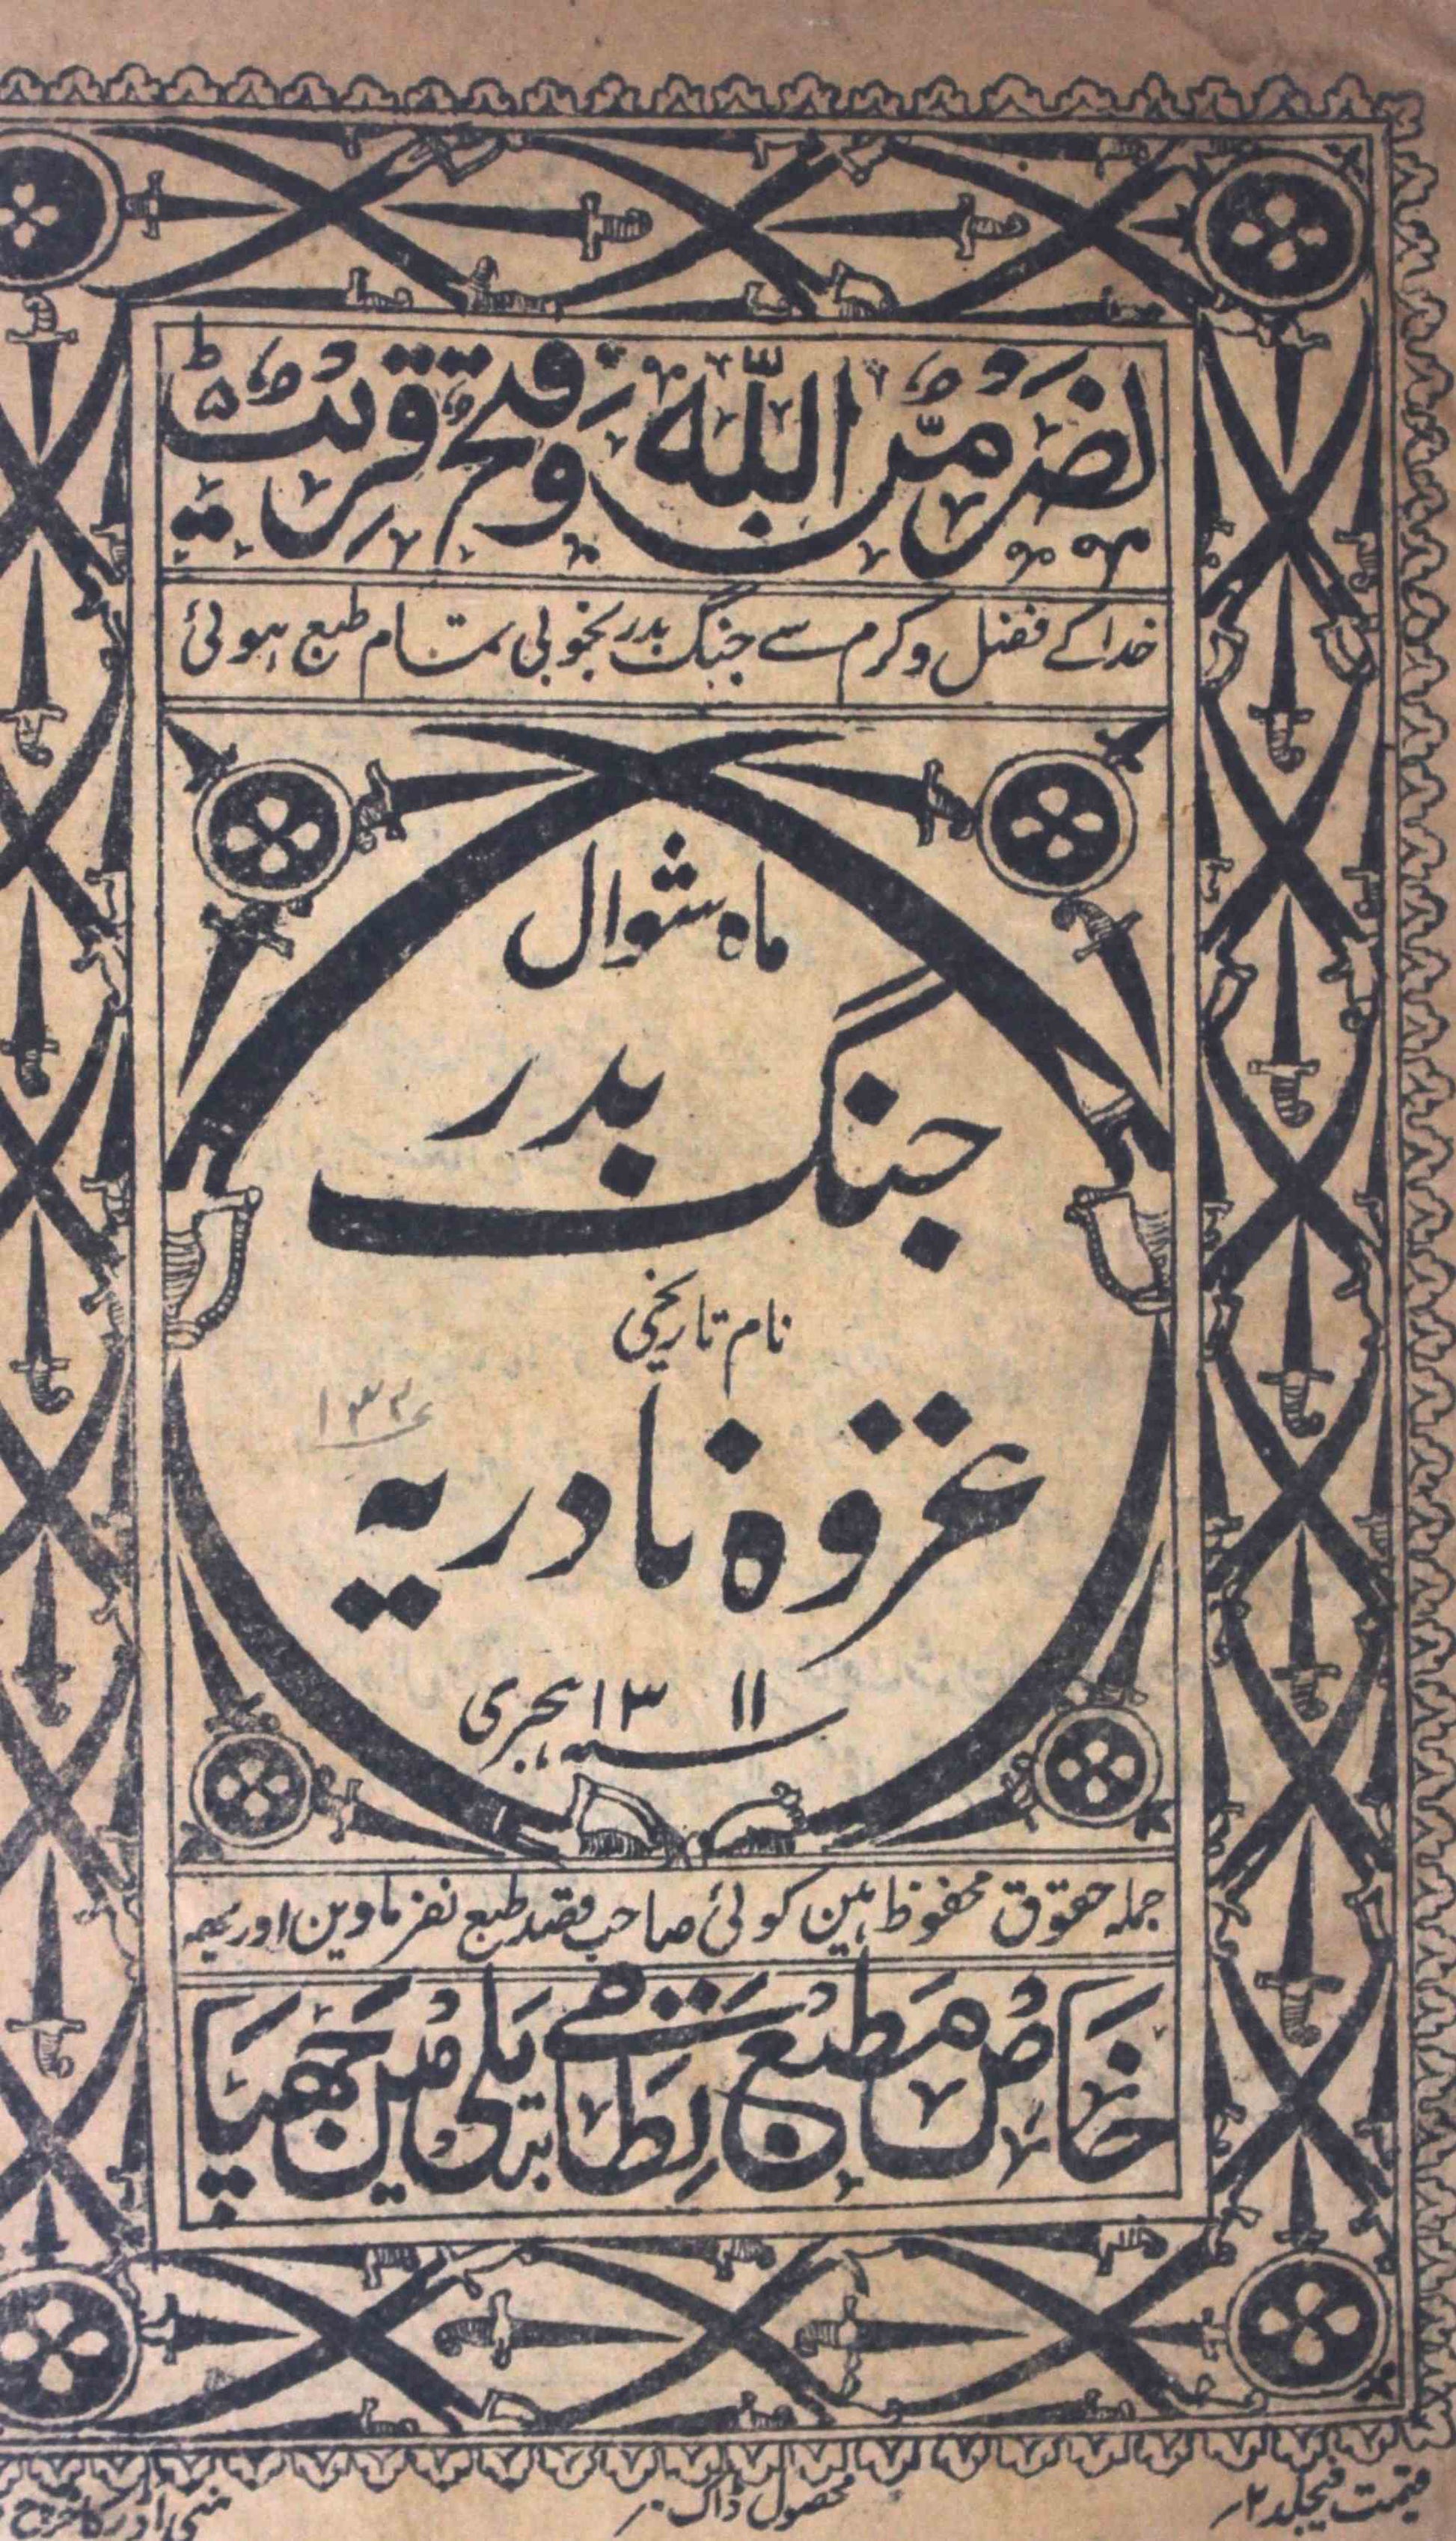 نَصْرٌ مِّنَ اللّٰهِ وَفَتْحٌ قَرِيْبٌ ط
خدا کے فضل و کرم سے جنگ بدر بخوبی تمام طبع ہوئی
ماہ شوال
جنگ بدر
نام تاریخی
غزوہ نادریہ
۱۳۱۱ ہجری
جملہ حقوق محفوظ ہین کوئی صاحب قصد طبع نفرماوین اور یہ
خاص مطبع نظامی بریلی میں چھپا
قیمت فیجلد ۲؍
محصول ڈاک ۰؍
منی اڈر کا خرچ